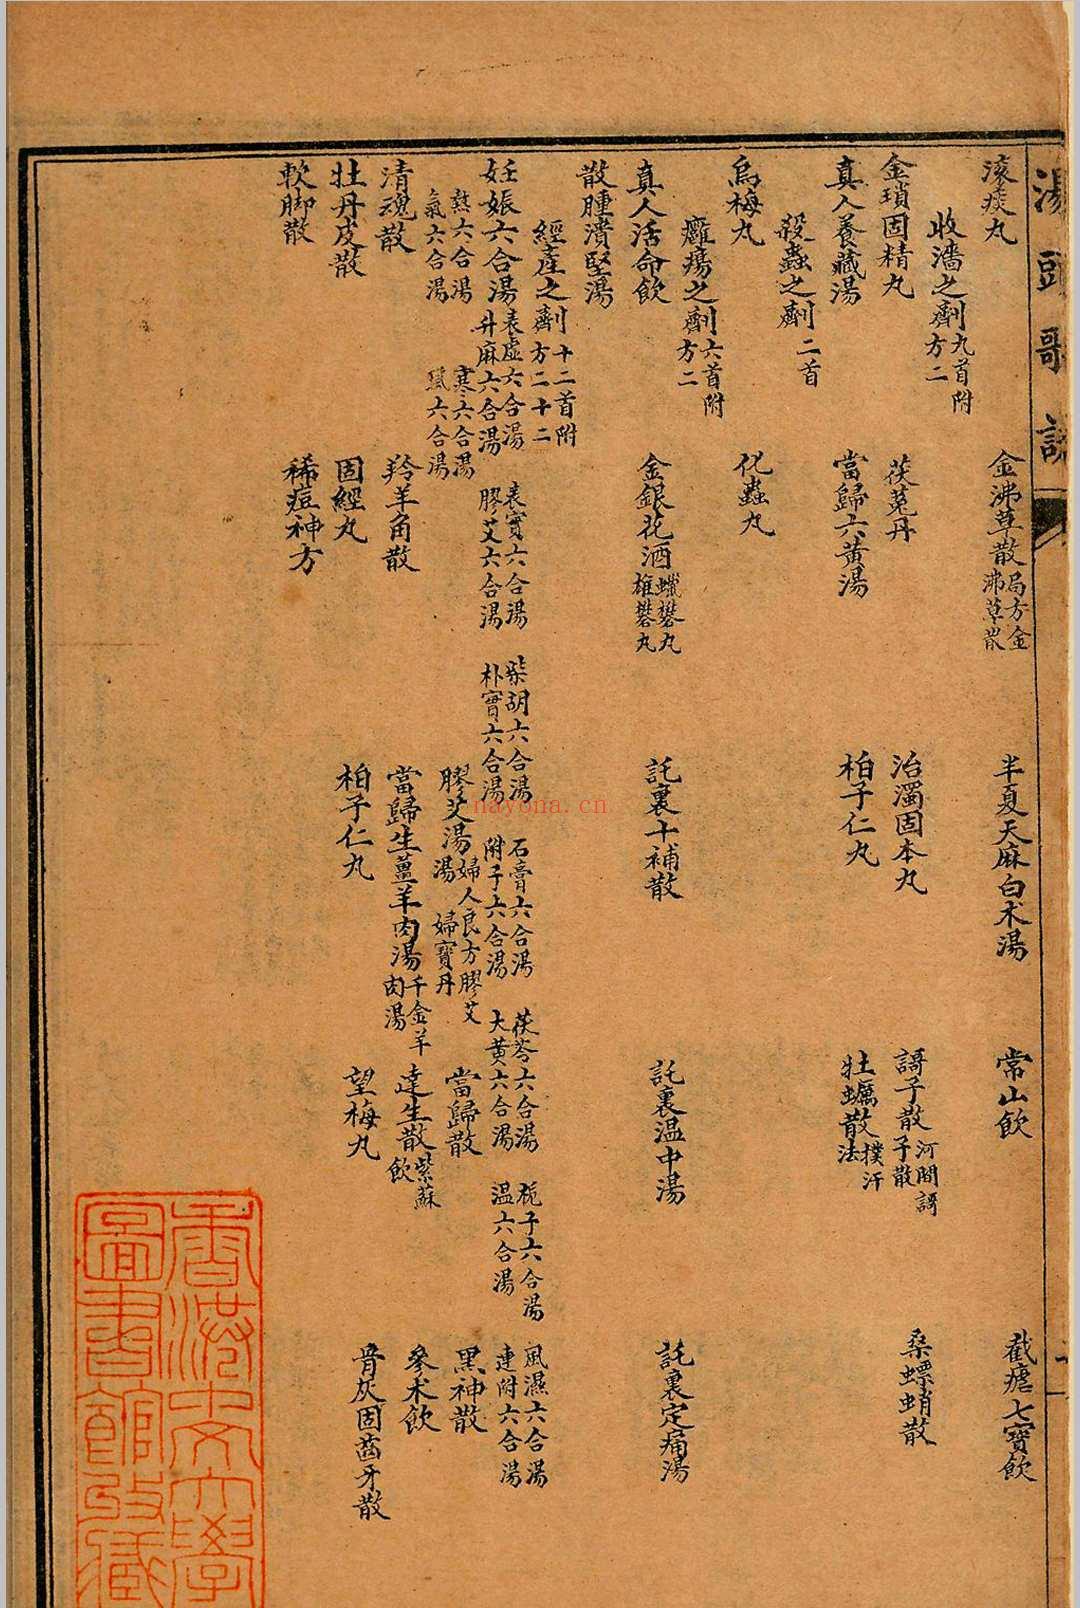 湯頭歌訣
滾痰丸 金沸草散 局方金沸草散 半夏天麻白朮湯 常山飲 截瘧七寶飲
收濇之劑 九首附方二
金瑣固精丸 茯菟丹 治濁固本丸 訶子散 河間訶子散 桑螵蛸散
真人養藏湯 當歸六黃湯 柏子仁丸 牡蠣散 撲汗法
殺蟲之劑 二首
烏梅丸 化蟲丸
癰瘍之劑 六首附方二
真人活命飲 金銀花酒 蠟礬丸 雄礬丸 託裏十補散 託裏溫中湯 託裏定痛湯
散腫潰堅湯
經產之劑 十二首附方二十二
妊娠六合湯 表虛六合湯 升麻六合湯 表實六合湯 膠艾六合湯 柴胡六合湯 朴實六合湯 石膏六合湯 附子六合湯 茯苓六合湯 大黃六合湯 梔子六合湯 溫六合湯 風濕六合湯 連附六合湯
熱六合湯 氣六合湯 寒六合湯 風六合湯 膠艾湯 婦人良方膠艾湯 婦寶丹 當歸散 黑神散
清魂散 羚羊角散 當歸生薑羊肉湯 千金羊肉湯 達生散 紫蘇飲 參朮飲
牡丹皮散 固經丸 柏子仁丸 望梅丸 骨灰固齒牙散
軟脚散 稀痘神方
nayona.cn
香港中文大學
圖書館改藏